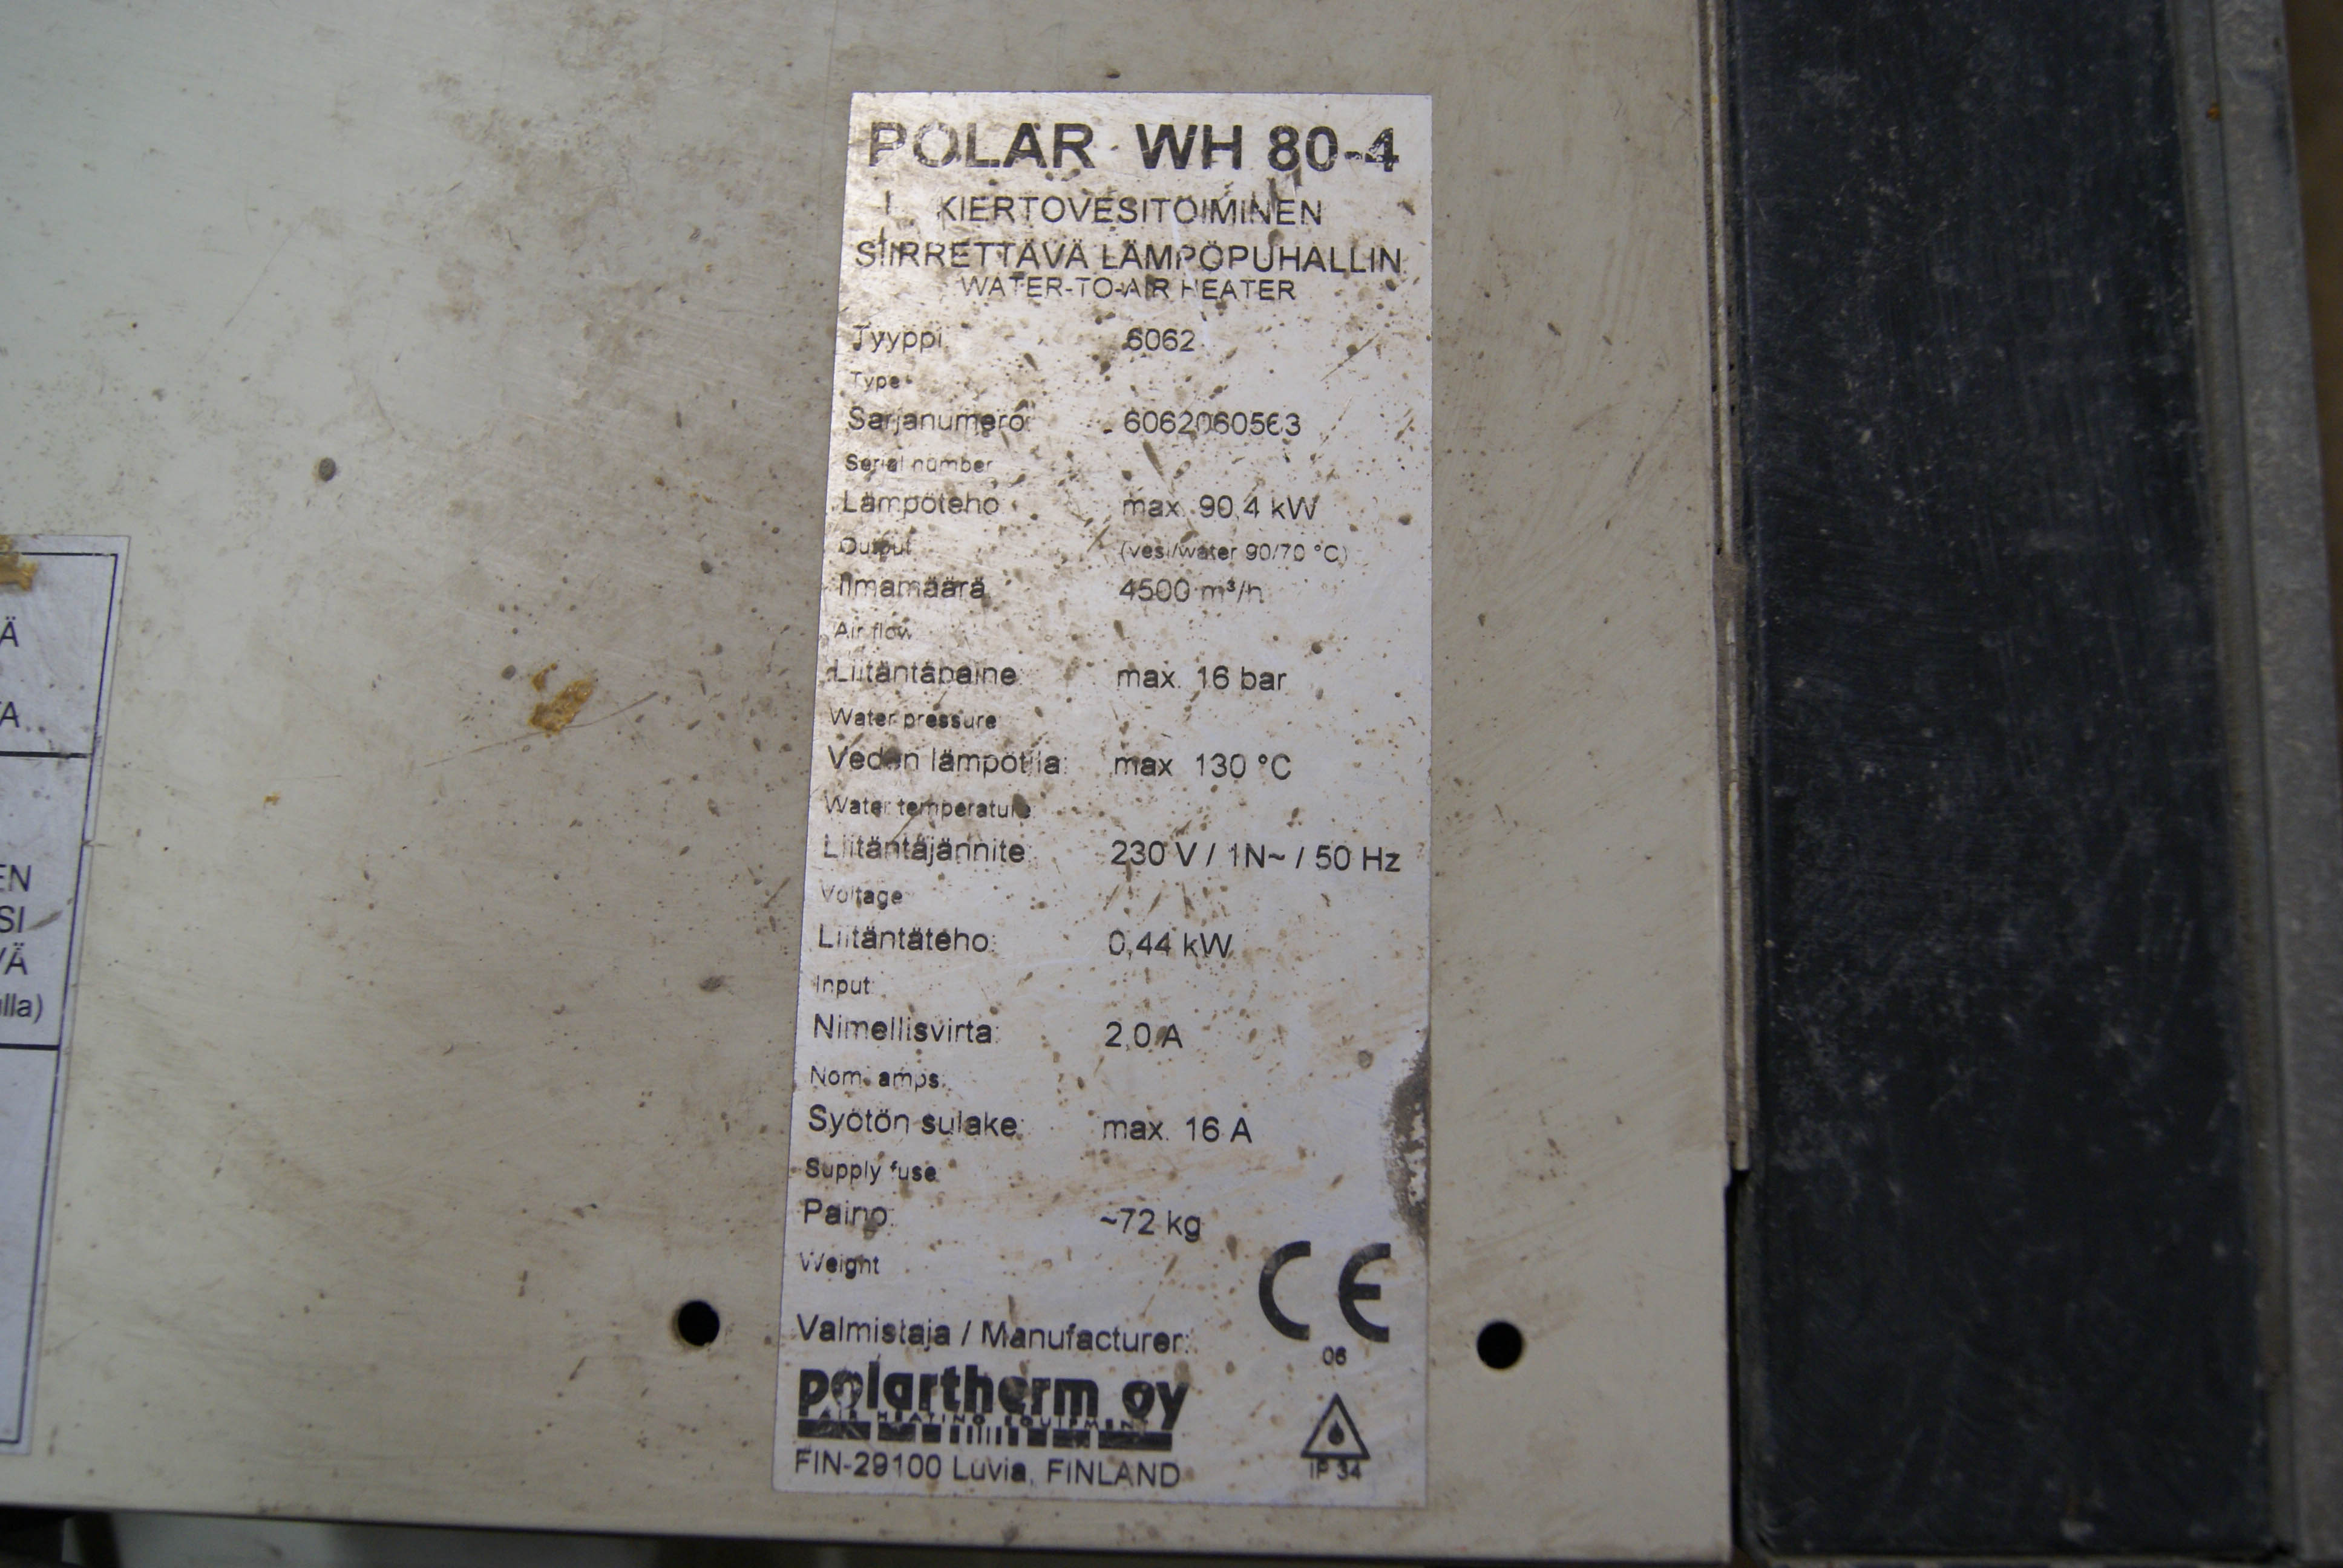 POLAR WH 80-4
KIERTOVESITOIMINEN
SIIRRETTÄVÄ LÄMPÖPUHALLIN
WATER-TO-AIR HEATER
Tyyppi 6062
Type
Sarjanumero:
Serial number
Lämpöteho max. 90,4 kW
Output (vesi/water 90/70 °C)
Ilmamäärä 4500 m³/h
Air flow
Liitäntäpaine max. 16 bar
Water pressure
Veden lämpötila: max 130 °C
Water temperature
Liitäntäjännite: 230 V / 1N~ / 50 Hz
Voltage
Liitäntäteho: 0,44 kW
Input
Nimellisvirta: 2,0 A
Nom. amps.
Syötön sulake: max. 16 A
Supply fuse
Paino: ~72 kg
Weight
CE
06
Valmistaja / Manufacturer:
polartherm oy
AIR HEATING EQUIPMENT
FIN-29100 Luvia, FINLAND
IP 34
Ä
TA
EN
SI
VÄ
lla)